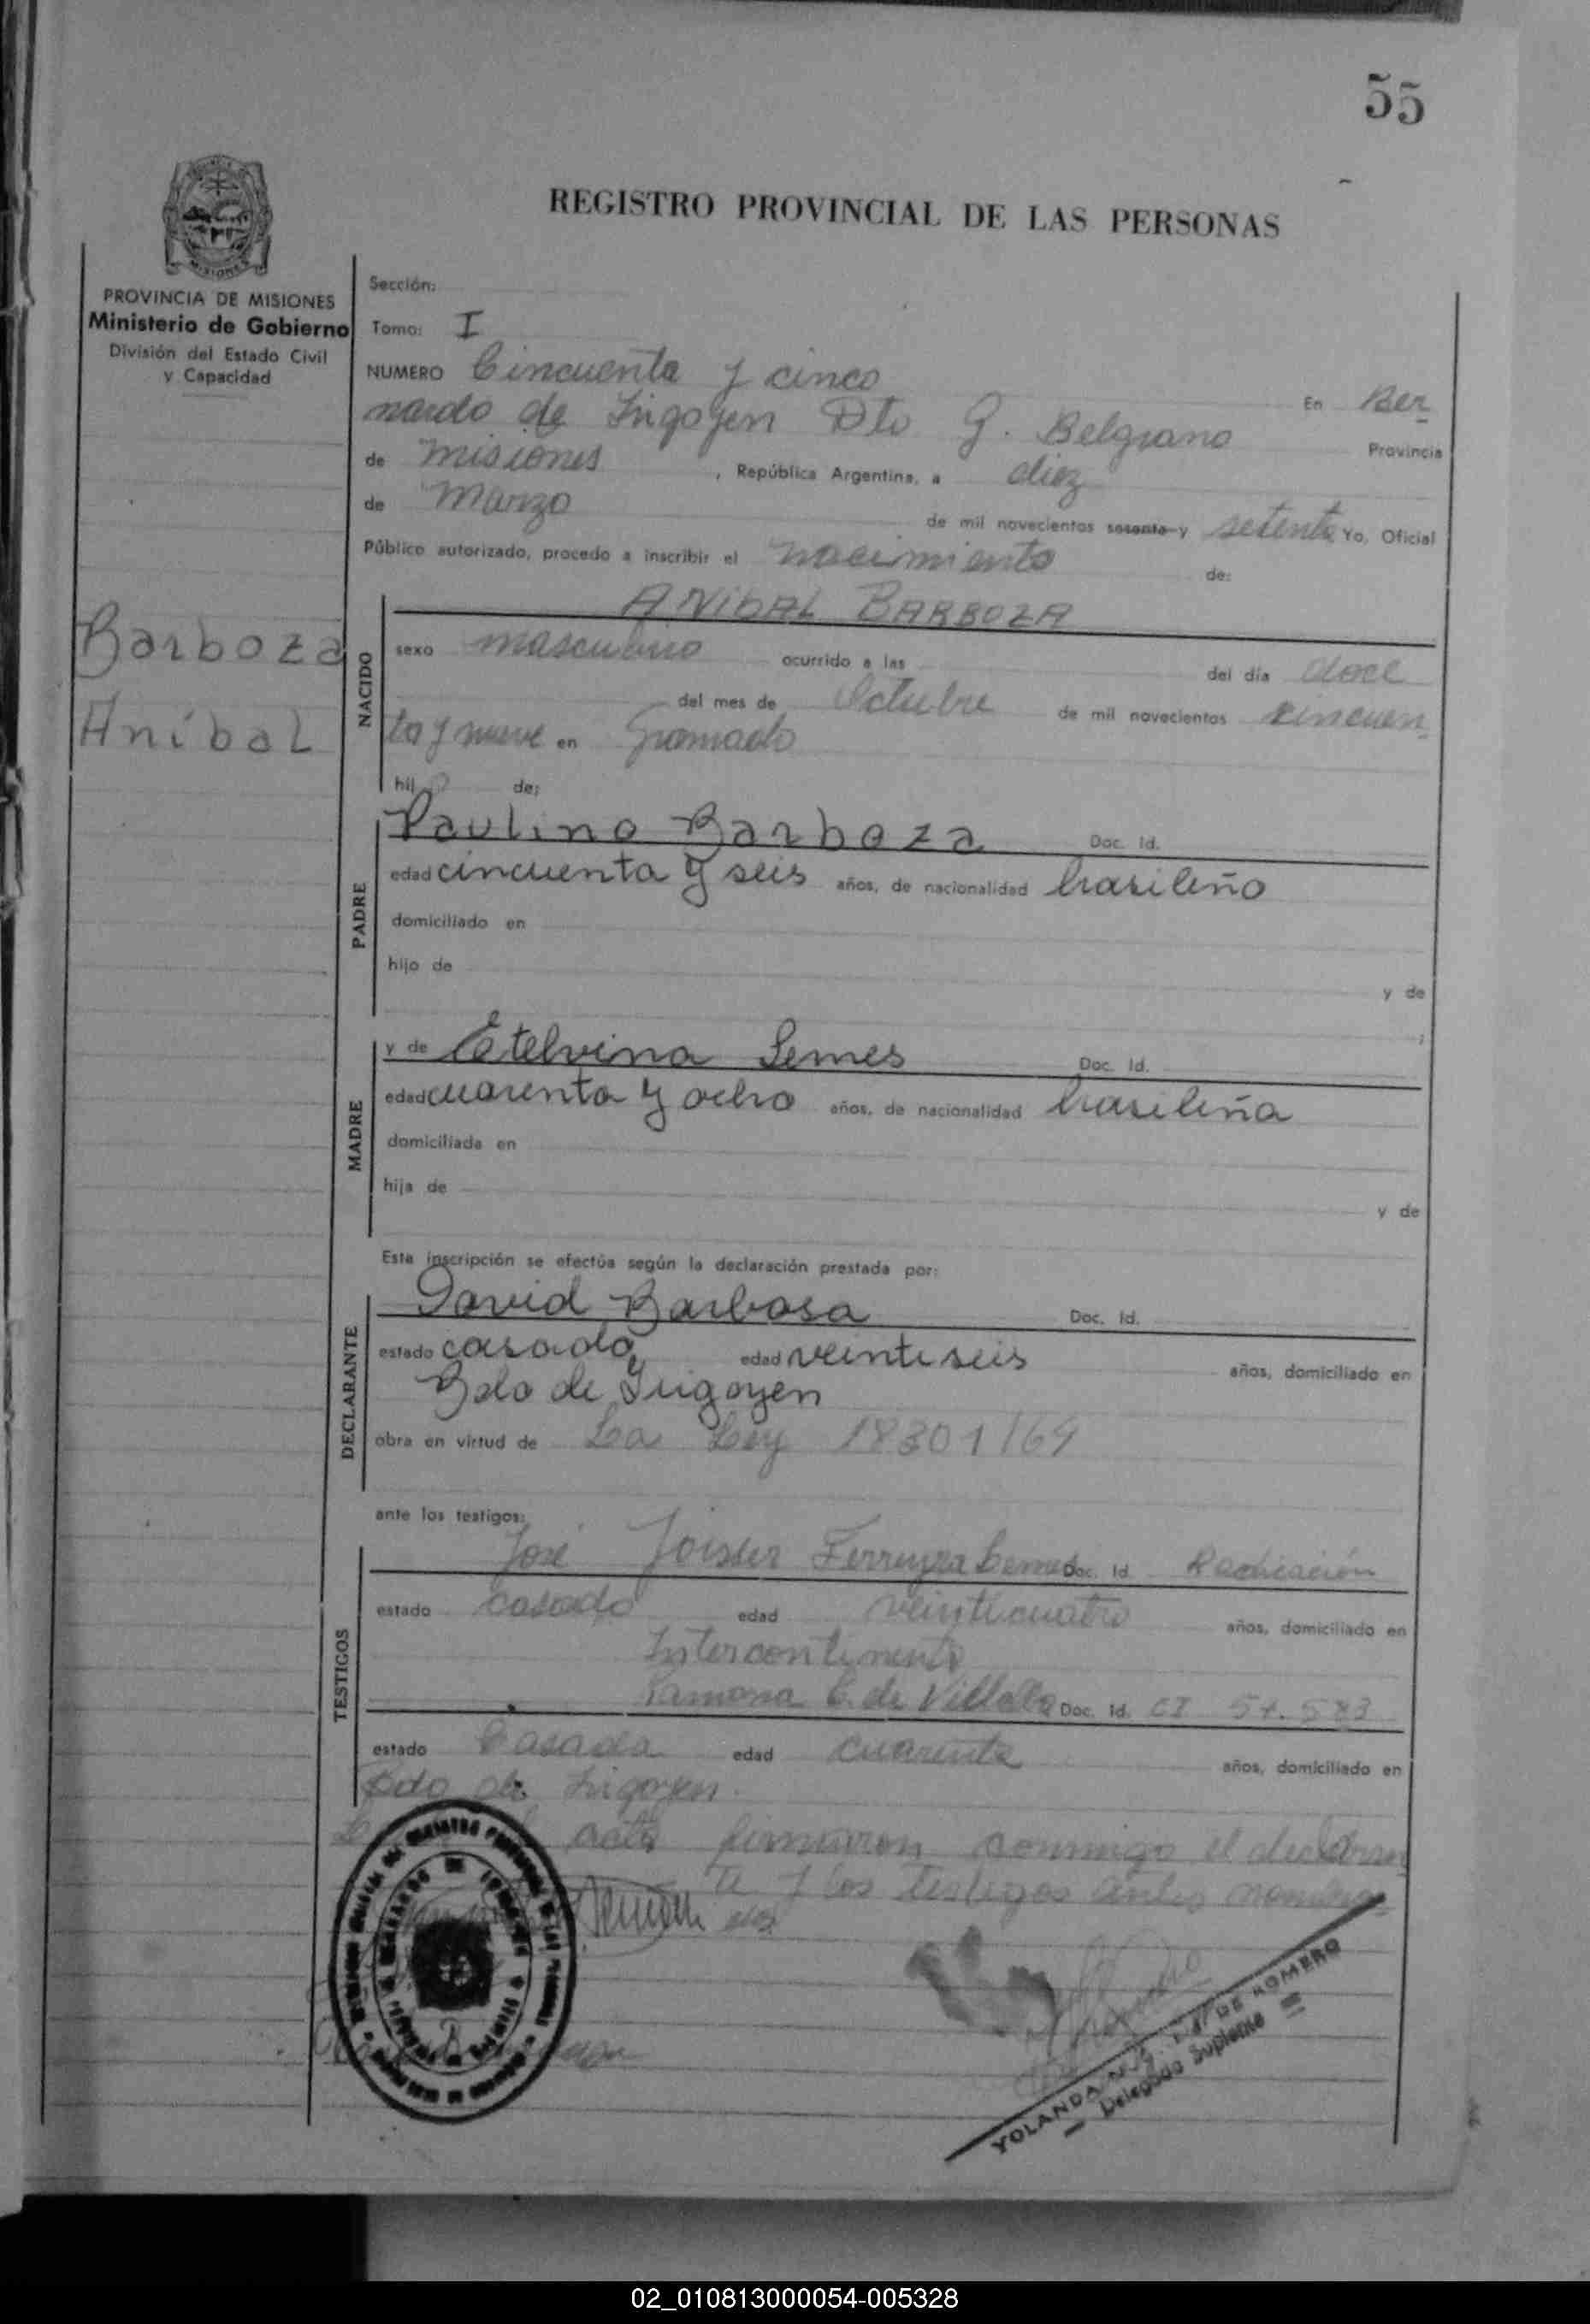 55
REGISTRO PROVINCIAL DE LAS PERSONAS
MISIONES
PROVINCIA DE MISIONES
Ministerio de Gobierno
División del Estado Civil
y Capacidad
Sección:
Tomo: I
NUMERO Cincuenta y cinco
En Ber
nardo de Irigoyen Dto G. Belgrano Provincia
de Misiones, República Argentina, a diez
de Marzo de mil novecientos sesenta y setenta Yo, Oficial
Público autorizado, procedo a inscribir el nacimiento de:
Barboza
Aníbal
NACIDO
ANIBAL BARBOZA
sexo masculino ocurrido a las del día doce
del mes de Octubre de mil novecientos cincuen
ta y nueve en Gramado
hijo de:
PADRE
Paulino Barboza Doc. Id.
edad cincuenta y seis años, de nacionalidad brasileño
domiciliado en
hijo de y de
MADRE
y de Etelvina Lemes Doc. Id.
edad cuarenta y ocho años, de nacionalidad brasileña
domiciliada en
hija de y de
Esta inscripción se efectúa según la declaración prestada por:
DECLARANTE
David Barbosa Doc. Id.
estado casado edad veintiseis años, domiciliado en
Bdo de Irigoyen
obra en virtud de La Ley 18301/69
ante los testigos:
TESTIGOS
José Ferreyra Lemes Doc. Id. Radicación
estado casado edad veinticuatro años, domiciliado en
Intercontinental
Ramona E. de Villalba Doc. Id. CI
estado Casada edad cuarenta años, domiciliado en
Bdo de Irigoyen.
acta firmaron conmigo el declaran
te y los testigos antes nombra
dos
YOLANDA DE ROMERO
Delegada Suplente
02_010813000054-005328